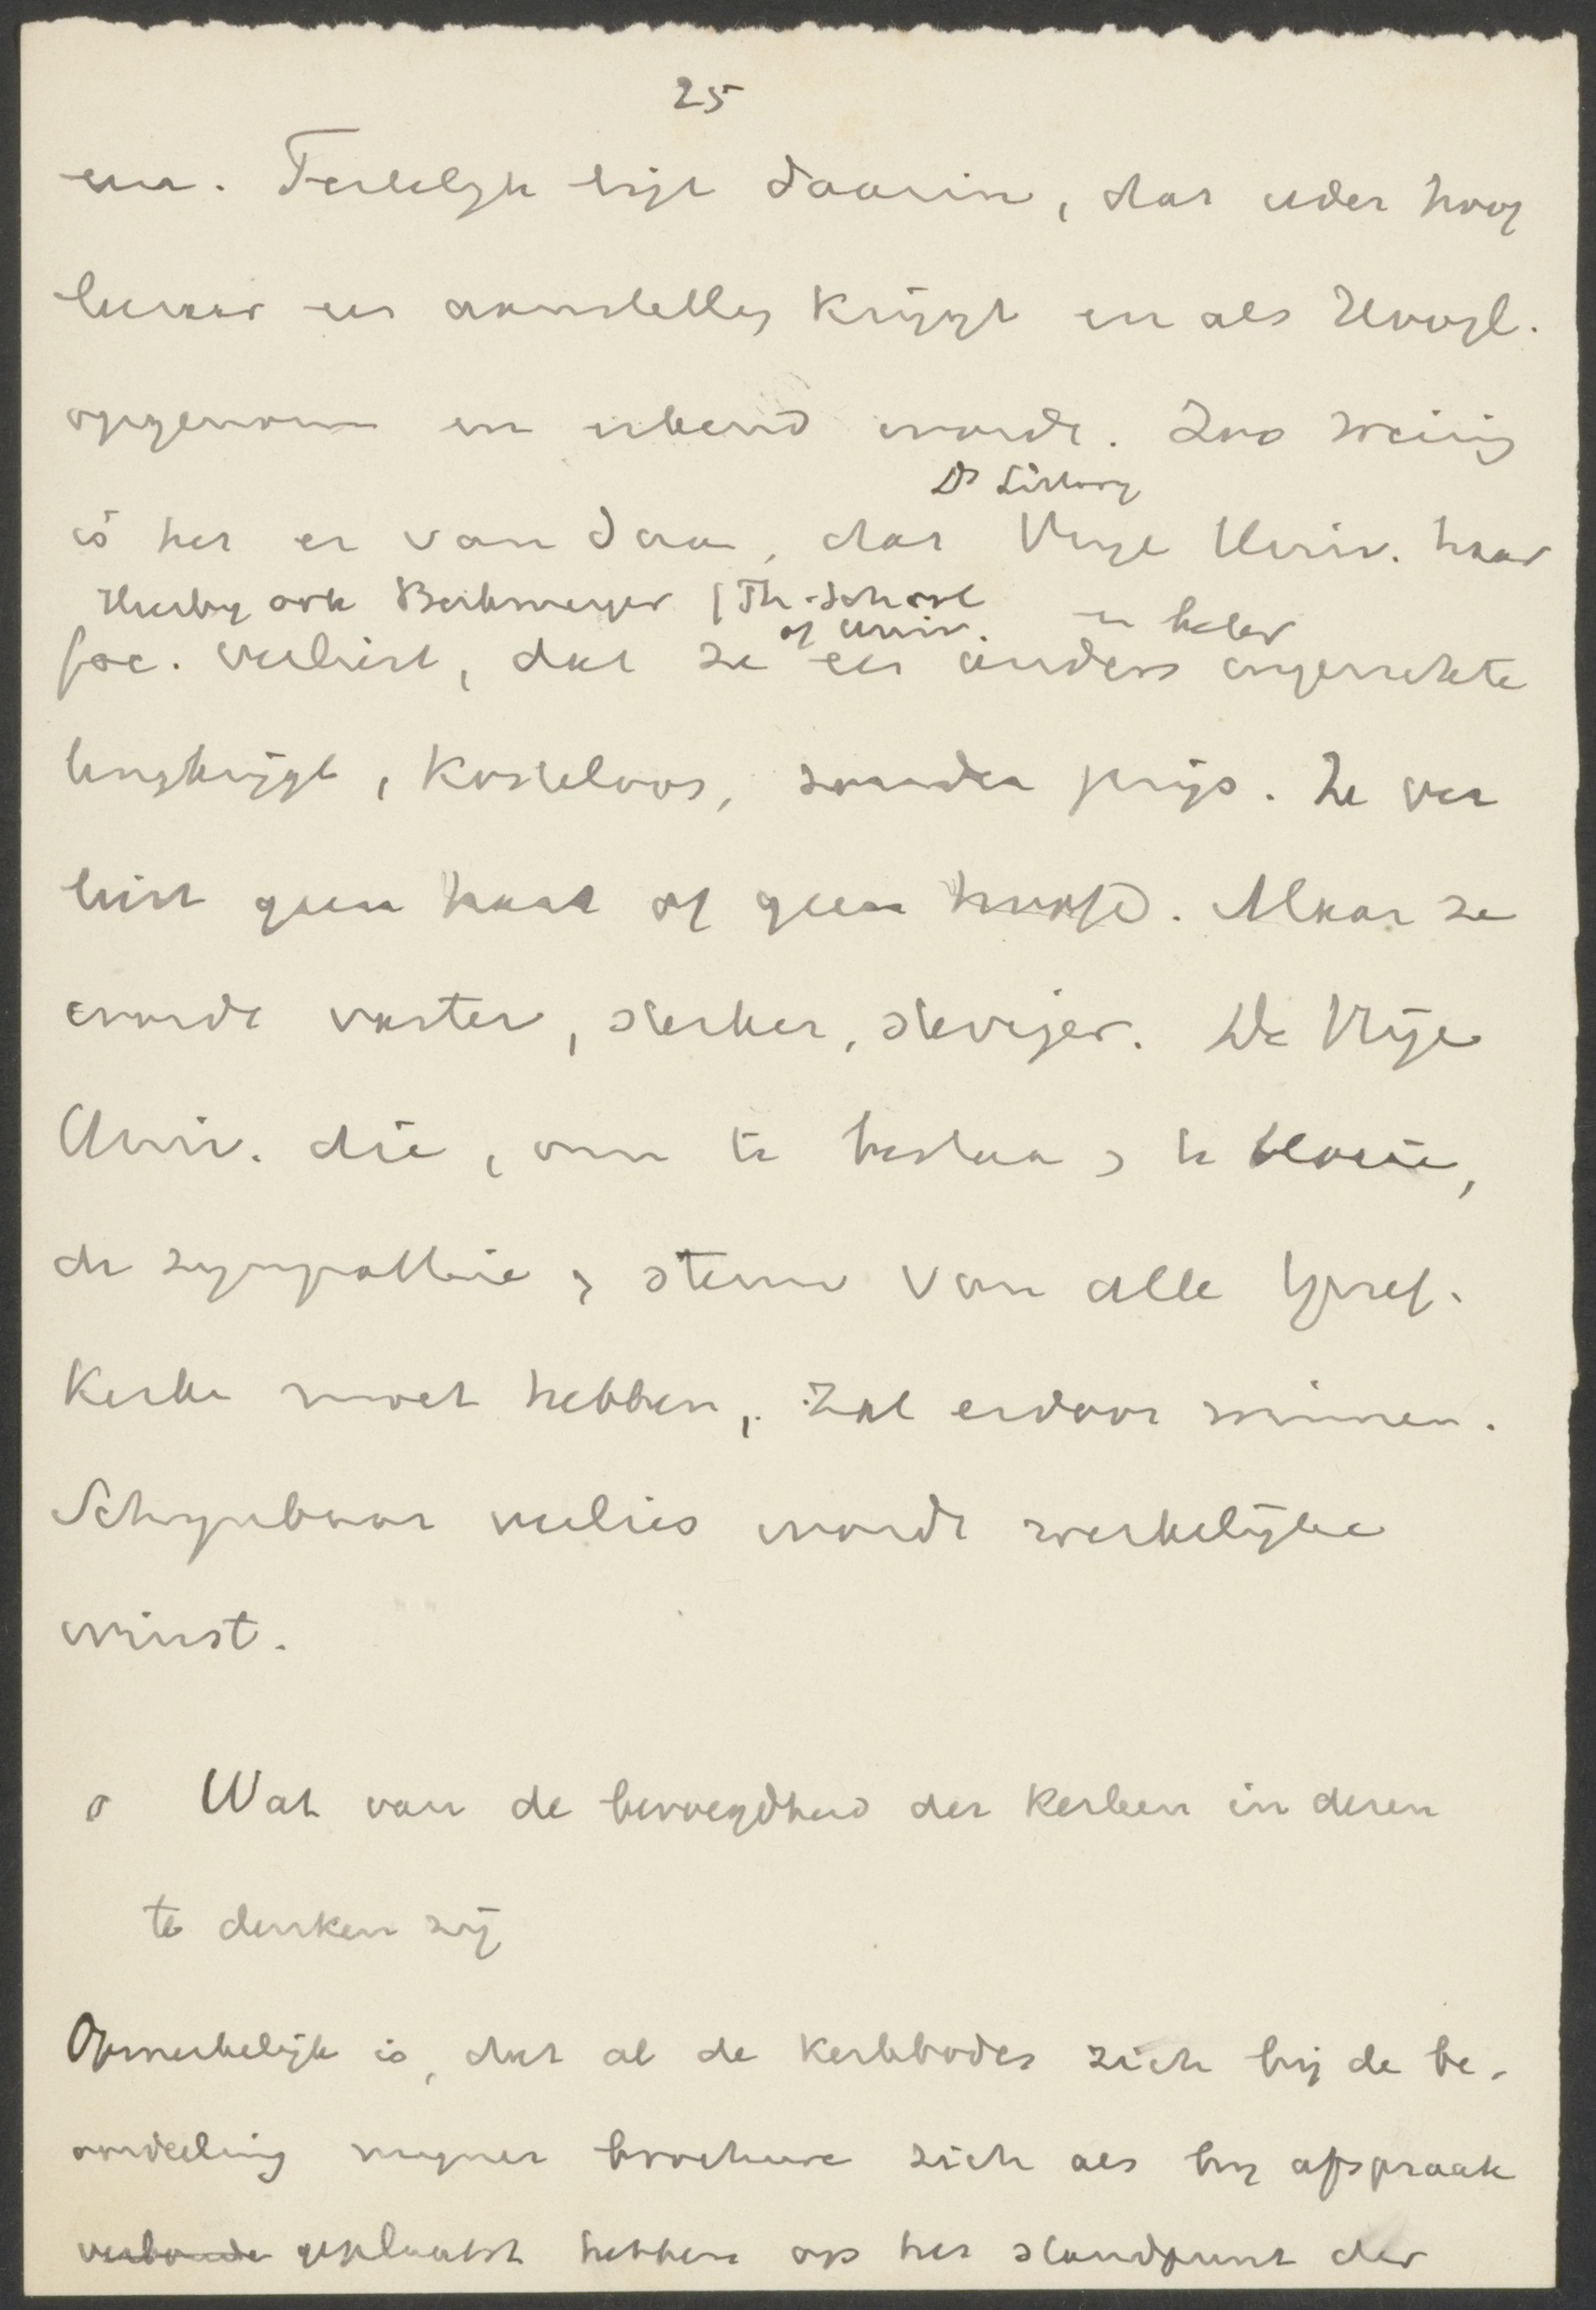 25
een. Feitelijk ligt daarin, dat ieder hoog
leeraar een aanstelling krijgt en als Hoogl.
opgenom en erkend wordt. Zoo weinig
is het er van daan, dat Vrije Univ. haar
Hierbij ook Biesterveld (Th. School
of Univ. en beter
fac. verliest, dat ze een anders ingerichte
terugkrijgt, kosteloos, zonder prijs. Ze ver
liest geen haar of geen hoofd. Maar ze
wordt vaster, sterker, steviger. De Vrije
Univ. die, om te bestaan & te bloeien,
de sympathie & steun van alle Geref.
Kerken moet hebben, zal erdoor winnen.
Schijnbaar verlies wordt werkelijke
winst.
Wat van de bevoegdheid der Kerken in dezen
te denken zij
Opmerkelijk is, dat al de kerkbodes zich bij de be-
oordeeling mijner brochure zich als bij afspraak
verbonden geplaatst hebben op het standpunt der